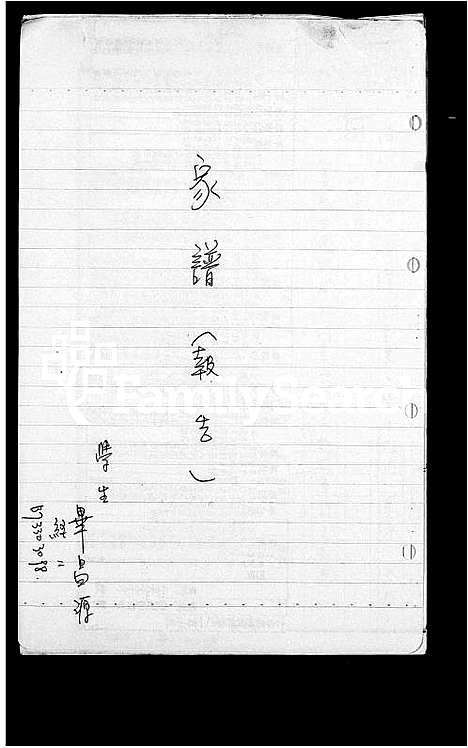 家譜（報告）
學生
畢昌源
經二
FamilySearch